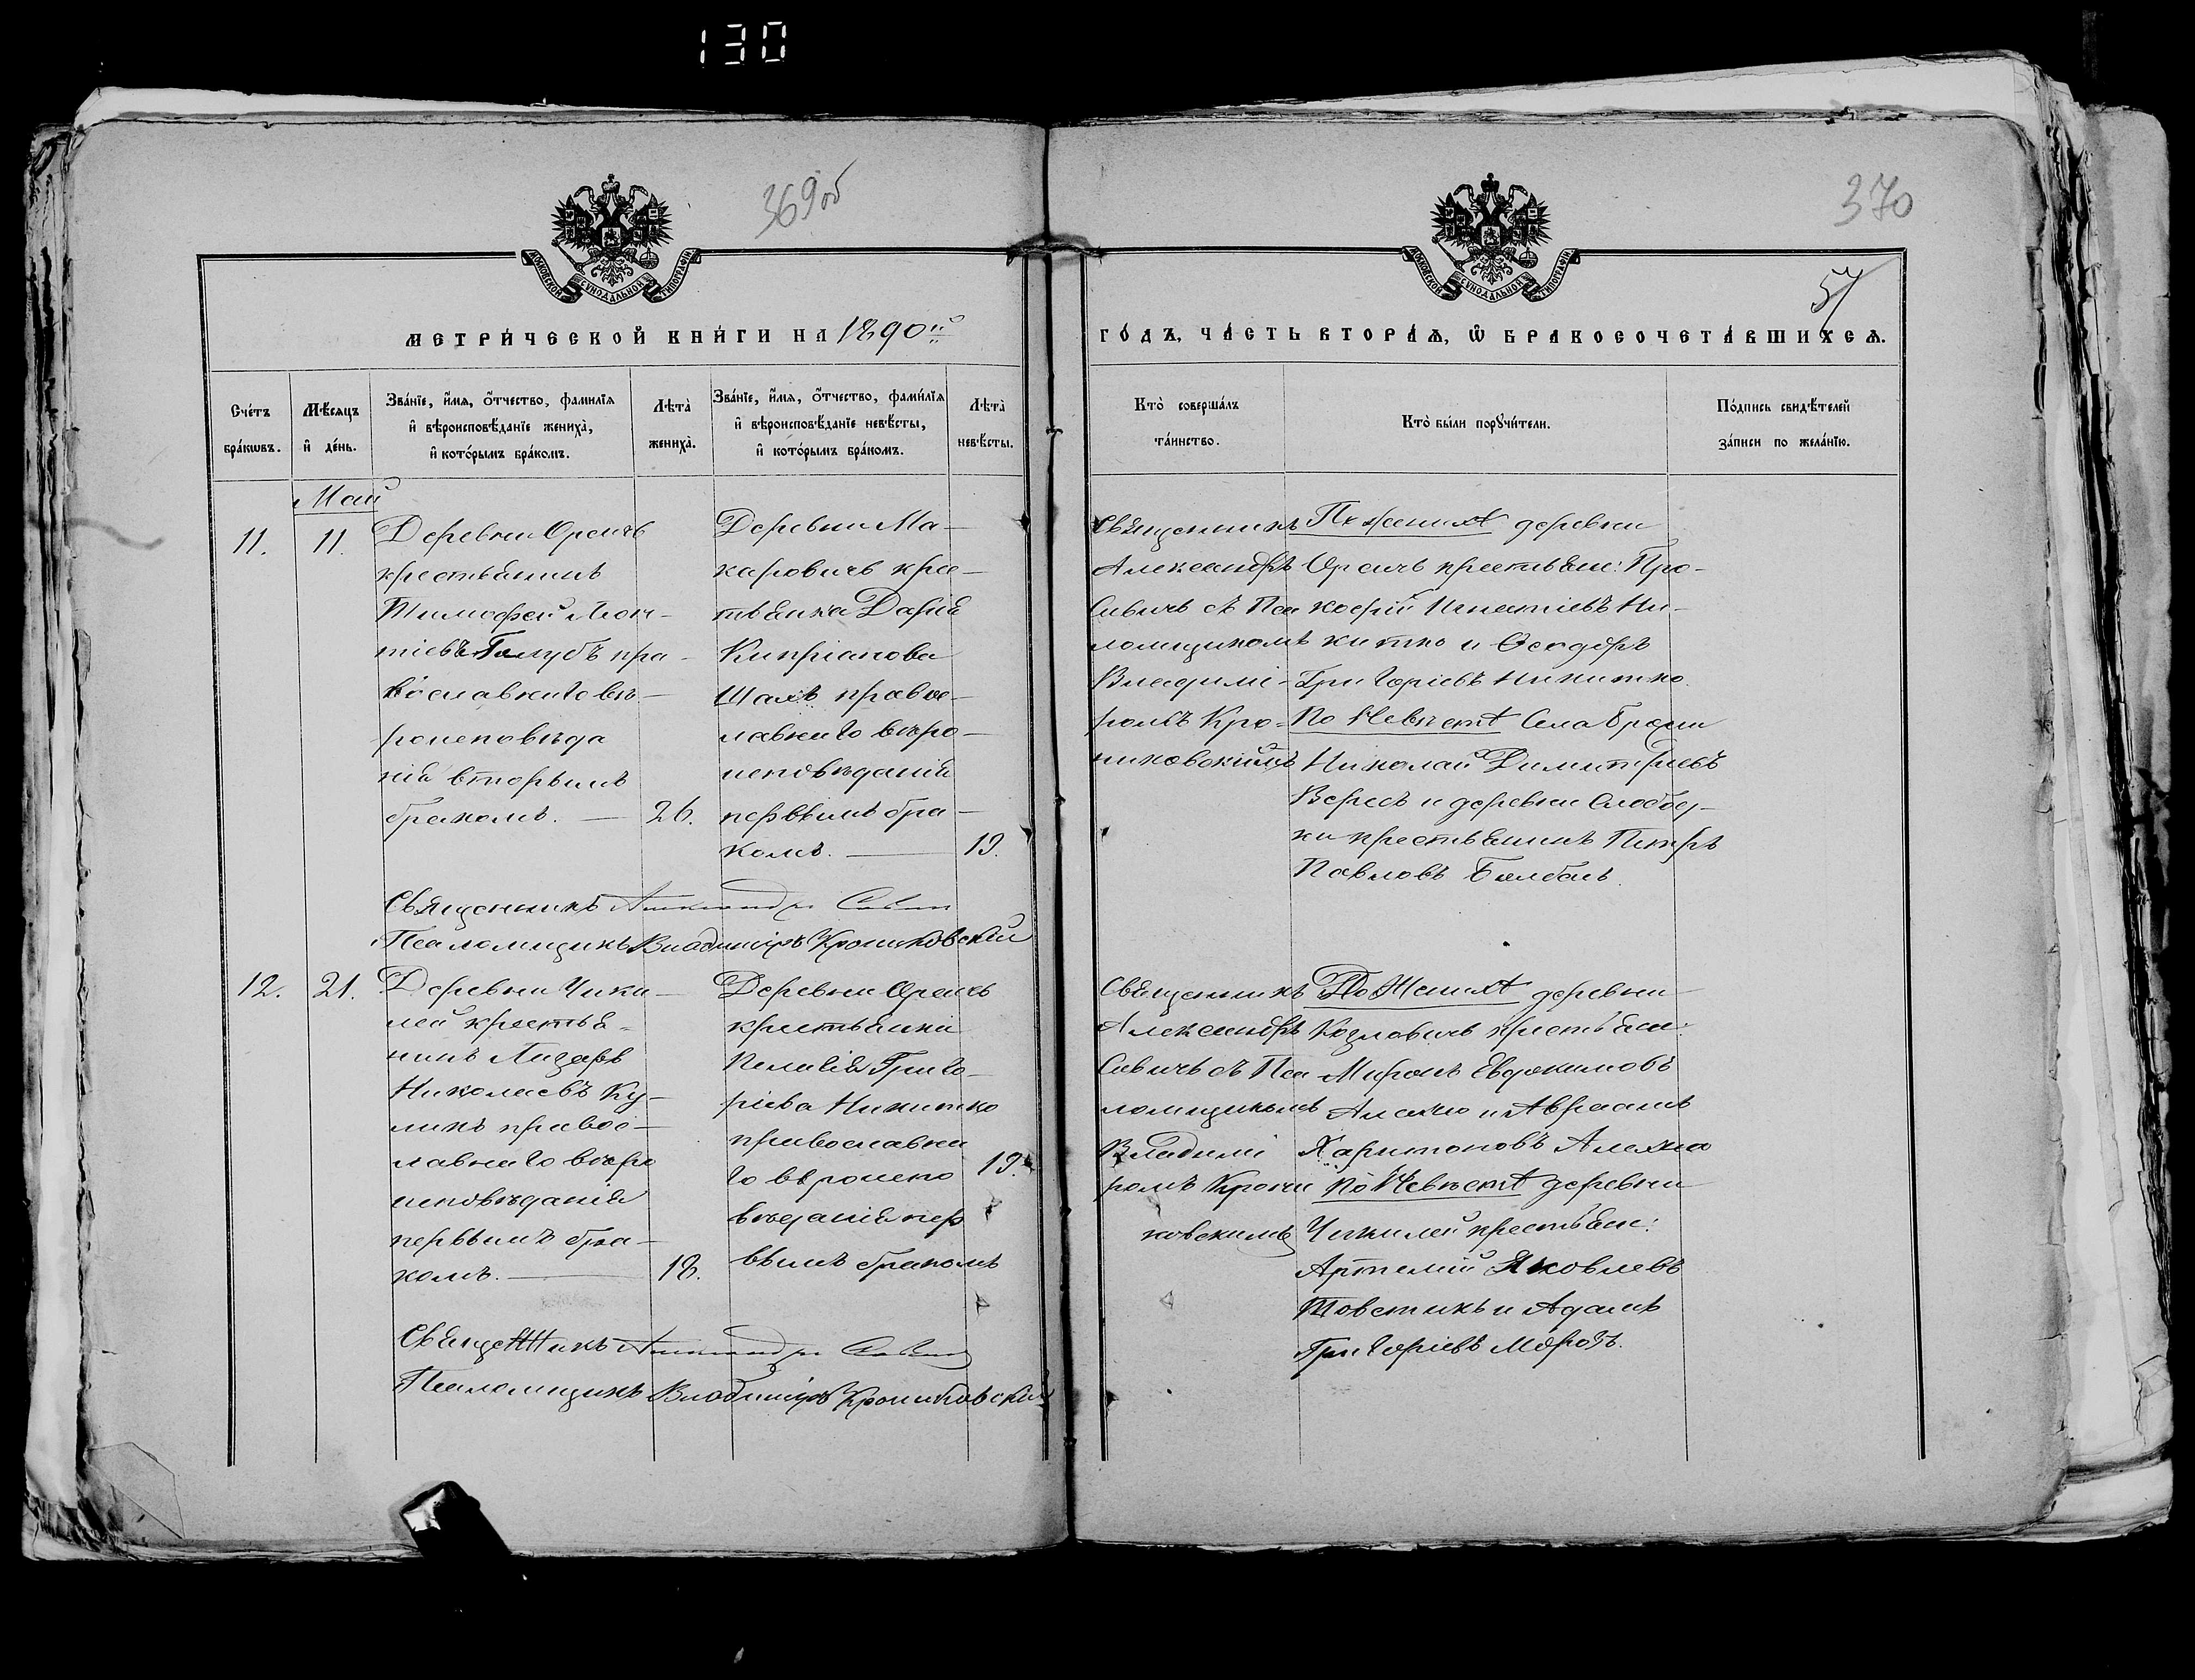 130
369об
370
57
МОСКОВСКОЙ СѴНОДАЛЬНОЙ ТИПОГРАФІИ
МОСКОВСКОЙ СѴНОДАЛЬНОЙ ТИПОГРАФІИ
МЕТРИ́ЧЕСКОЙ КНИ́ГИ НА 1890й
ГО́ДЪ, ЧА́СТЬ ВТОРА́Ѧ, Ѡ҆ БРАКОСОЧЕТА́ВШИХСѦ.
Сче́тъ бра́кѡвъ.
Мѣ́сѧцъ и҆ де́нь.
Зва́нїе, и҆́мѧ, ѻ҆́тчество, фами́лїѧ
и҆ вѣроисповѣ́данїе жениха̀,
и҆ кото́рымъ бра́комъ.
Лѣта̀ жениха̀.
Зва́нїе, и҆́мѧ, ѻ҆́тчество, фами́лїѧ
и҆ вѣроисповѣ́данїе невѣ́сты,
и҆ кото́рымъ бра́комъ.
Лѣта̀ невѣ́сты.
Кто̀ соверша́лъ
та́инство.
Кто̀ бы́ли порꙋчи́тели.
По́дпись свидѣ́телей
за́писи по жела́нїю.
Май
11.
11.
Деревни Оречь
крестьянинъ
Тимофей Леон-
тіевъ Голубъ пра-
вославнаго вѣ-
роисповѣда
нія вторымъ
бракомъ. — 26.
Деревни Ма-
каровичь крес-
тьянка Дарія
Кипріанова
Шахъ правос-
лавнаго вѣро-
исповѣданія
первымъ бра-
комъ. — 19.
Священникъ
Александръ
Савичь съ Пса
ломщикомъ
Владимі-
ромъ Кро-
никовскимъ
По женихѣ деревни
Оречь крестьяне: Про-
кофій Игнатіевъ Ни-
китко и Ѳеодоръ
Григоріевъ Никитко
По Невѣстѣ Села
Николай Димитріевъ
Вересъ и деревни Слобод-
ки крестьянинъ Петръ
Павловъ Балбасъ.
Священникъ Александръ Савичъ
Псаломщикъ Владиміръ Крониковскій
12.
21.
Деревни Чики-
лей крестья-
нинъ Лазарь
Николаевъ Ку-
ликъ правос-
лавнаго вѣро
исповѣданія
первымъ бра-
комъ. — 18.
Деревни Оречь
крестьянка
Пелагія Григо-
ріева Никитко
православна
го вѣроиспо 19.
вѣданія пер
вымъ бракомъ
Священникъ
Александръ
Савичъ съ Пса
ломщикомъ
Владимі
ромъ Крони
ковскимъ
По Женихѣ деревни
Козловичь крестьяне:
Миронъ Евдокимовъ
Алехно и Авраамъ
Харитоновъ Алехно
По Невѣстѣ деревни
Чикилей крестьяне:
Артемій Яковлевъ
Товстикъ и Адамъ
Григоріевъ Морозъ.
Священникъ Александръ Савичъ
Псаломщикъ Владиміръ Крониковскій